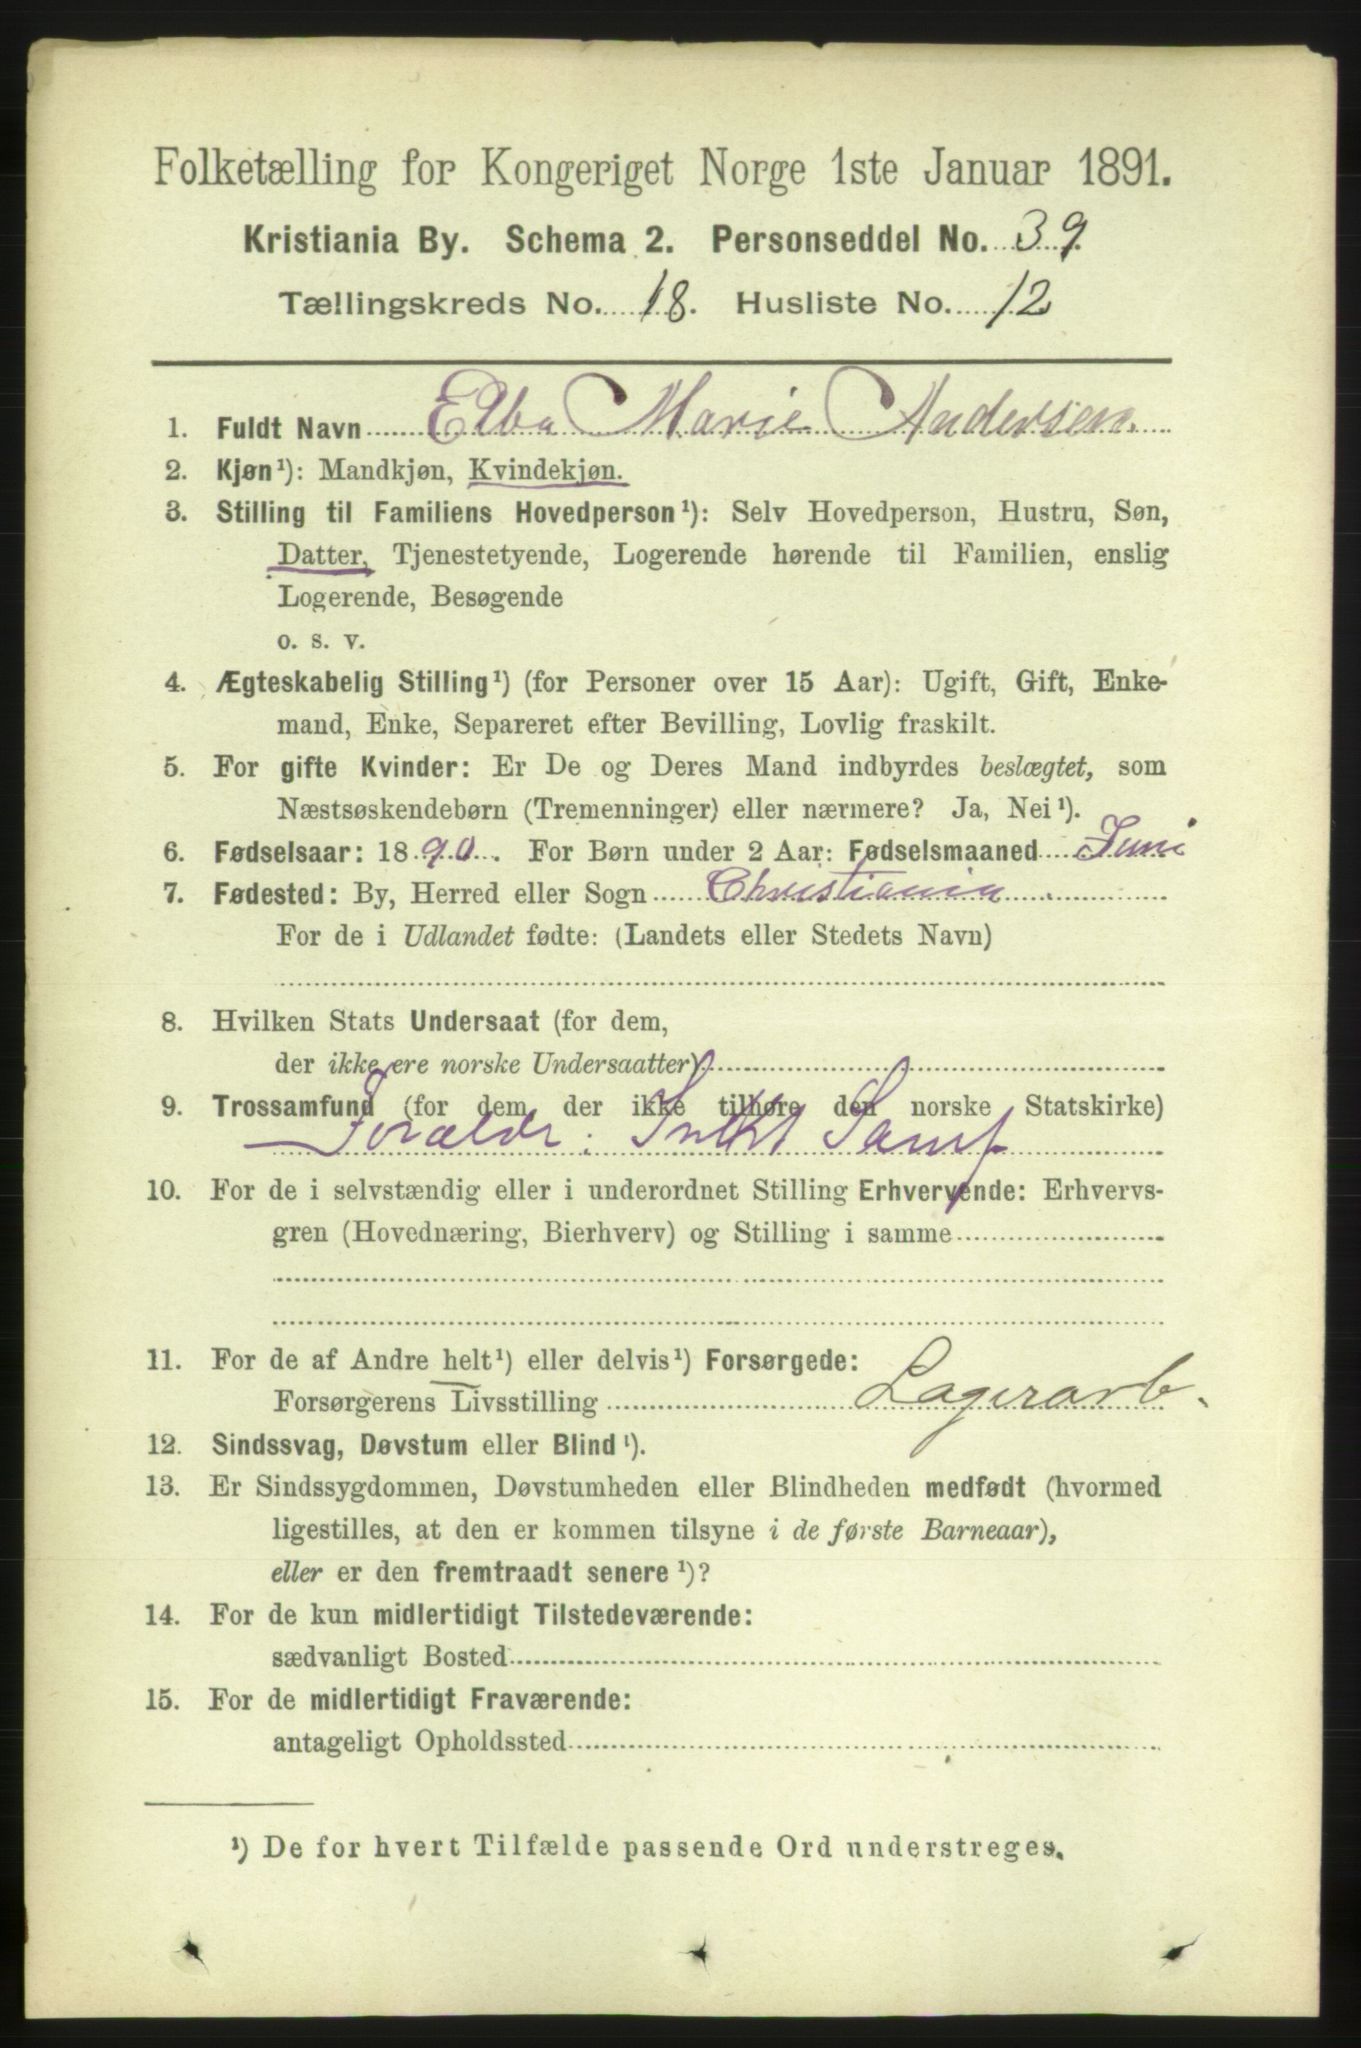 Folketælling for Kongeriget Norge 1ste Januar 1891.
Kristiania By. Schema 2. Personseddel No. 39.
Tællingskreds No. 18. Husliste No. 12
1. Fuldt Navn Elba Marie Andersen.
2. Kjøn¹): Mandkjøn, Kvindekjøn.
3. Stilling til Familiens Hovedperson¹): Selv Hovedperson, Hustru, Søn,
Datter, Tjenestetyende, Logerende hørende til Familien, enslig
Logerende, Besøgende
o. s. v.
4. Ægteskabelig Stilling¹) (for Personer over 15 Aar): Ugift, Gift, Enke-
mand, Enke, Separeret efter Bevilling, Lovlig fraskilt.
5. For gifte Kvinder: Er De og Deres Mand indbyrdes beslægtet, som
Næstsøskendebørn (Tremenninger) eller nærmere? Ja, Nei¹).
6. Fødselsaar: 1890. For Børn under 2 Aar: Fødselsmaaned Juni
7. Fødested: By, Herred eller Sogn Christiania
For de i Udlandet fødte: (Landets eller Stedets Navn)
8. Hvilken Stats Undersaat (for dem,
der ikke ere norske Undersaatter)
9. Trossamfund (for dem der ikke tilhøre den norske Statskirke)
Forældr: Samf
10. For de i selvstændig eller i underordnet Stilling Erhvervende: Erhvervs-
gren (Hovednæring, Bierhverv) og Stilling i samme
11. For de af Andre helt¹) eller delvis¹) Forsørgede:
Forsørgerens Livsstilling Lagerarb.
12. Sindssvag, Døvstum eller Blind¹).
13. Er Sindssygdommen, Døvstumheden eller Blindheden medfødt (hvormed
ligestilles, at den er kommen tilsyne i de første Barneaar),
eller er den fremtraadt senere¹)?
14. For de kun midlertidigt Tilstedeværende:
sædvanligt Bosted
15. For de midlertidigt Fraværende:
antageligt Opholdssted
¹) De for hvert Tilfælde passende Ord understreges.